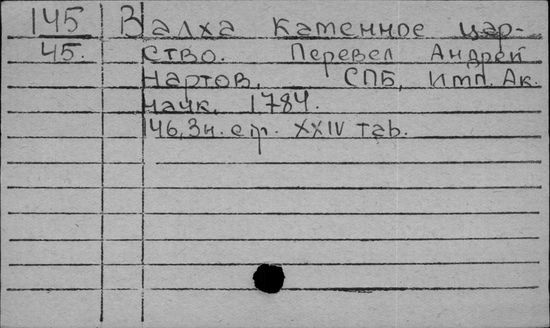 145 Валха Каменное цар-
45. ство. Перевел Андрей
Нартов. СПБ, Имп. Ак.
наук. 1784.
46,3н. стр. XXIV таb.